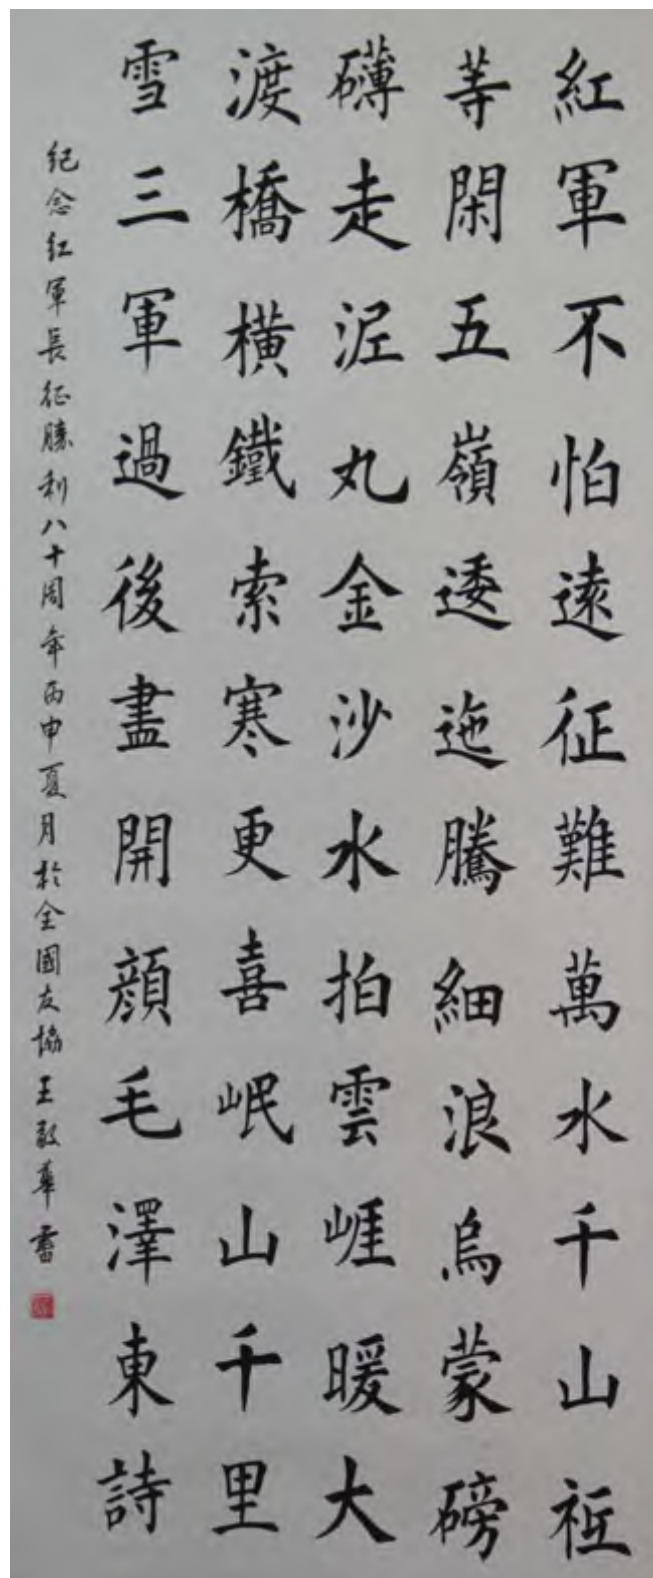 紅軍不怕遠征難萬水千山衹
等閑五嶺逶迤騰細浪烏蒙磅
礴走泥丸金沙水拍雲崖暖大
渡橋橫鐵索寒更喜岷山千里
雪三軍過後盡開顏毛澤東詩
紀念紅軍長征勝利八十周年丙申夏月於全國友協王敬華書